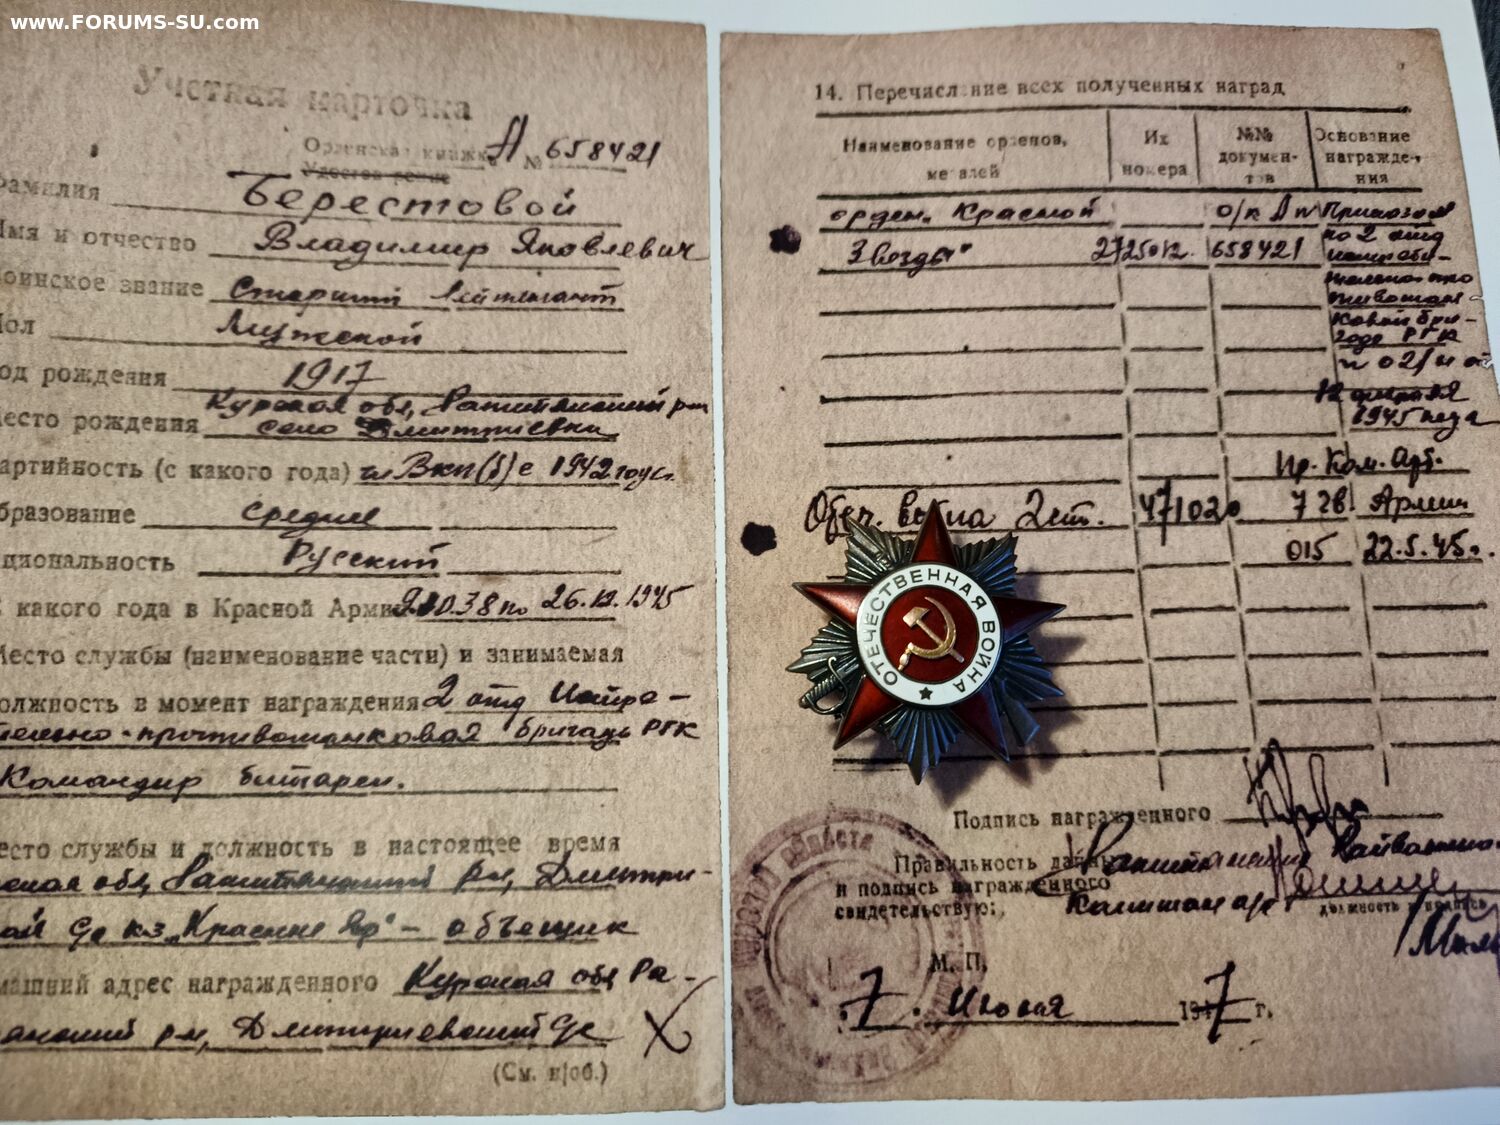 www.FORUMS-SU.com
Учетная карточка
Орденская книжка А № 658421
Удостоверение
Фамилия Берестовой
Имя и отчество Владимир Яковлевич
Воинское звание Старший лейтенант
Пол Мужской
Год рождения 1917
Место рождения Курская обл, Ракитянский р-н
село Дмитриевка
Партийность (с какого года) чл ВКП(б) с 1942 года
Образование среднее
Национальность Русский
С какого года в Красной Армии 38 по 26.12.1945
Место службы (наименование части) и занимаемая
должность в момент награждения 2 отд Истре-
тельно-противотанковая бригада РГК
Командир батареи.
Место службы и должность в настоящее время
Курская обл, Ракитянский р-н, Дмитри-
кз „Красный Яр" - объещик
Домашний адрес награжденного Курская обл Ра-
р-н, Дмитриевский
(См. н/об.)
14. Перечисление всех полученных наград
Наименование орденов, медалей
Их номера
№№ документов
Основание награждения
орден „Красной Звезды"
658421
Приказом
по 2 отд
истреби-
тельно про
тивотан-
ковой бри-
гаде РГК
1945 года
Отеч. война 2 ст. 471020
Пр. Ком. Арт.
7 гв Армии
015 22.5.45г.
ОТЕЧЕСТВЕННАЯ ВОЙНА
Подпись награжденного
Правильность данных
и подпись награжденного
свидетельствую:
Ракитянский Райвоенком
Капитан а/с
должность и подпись
М. П.
7. Июля 1947 г.